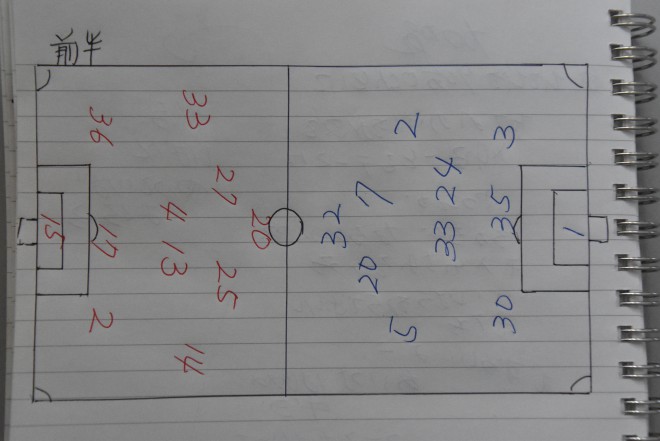 前半
33
36
27
4
20
15
17
13
25
2
14
2
3
24
7
35
32
33
1
20
5
30